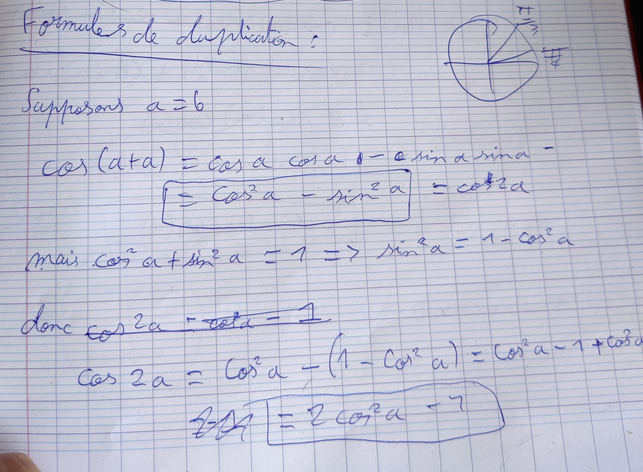 Formules de duplication :
π/3
π/4
Supposons a = b
cos(a+a) = cos a cos a - sin a sin a =
= cos²a - sin²a = cos 2a
mais cos²a + sin²a = 1 => sin²a = 1 - cos²a
donc cos 2a = cos²a - 1
cos 2a = cos²a - (1 - cos²a) = cos²a - 1 + cos²a
= 2cos²a - 1